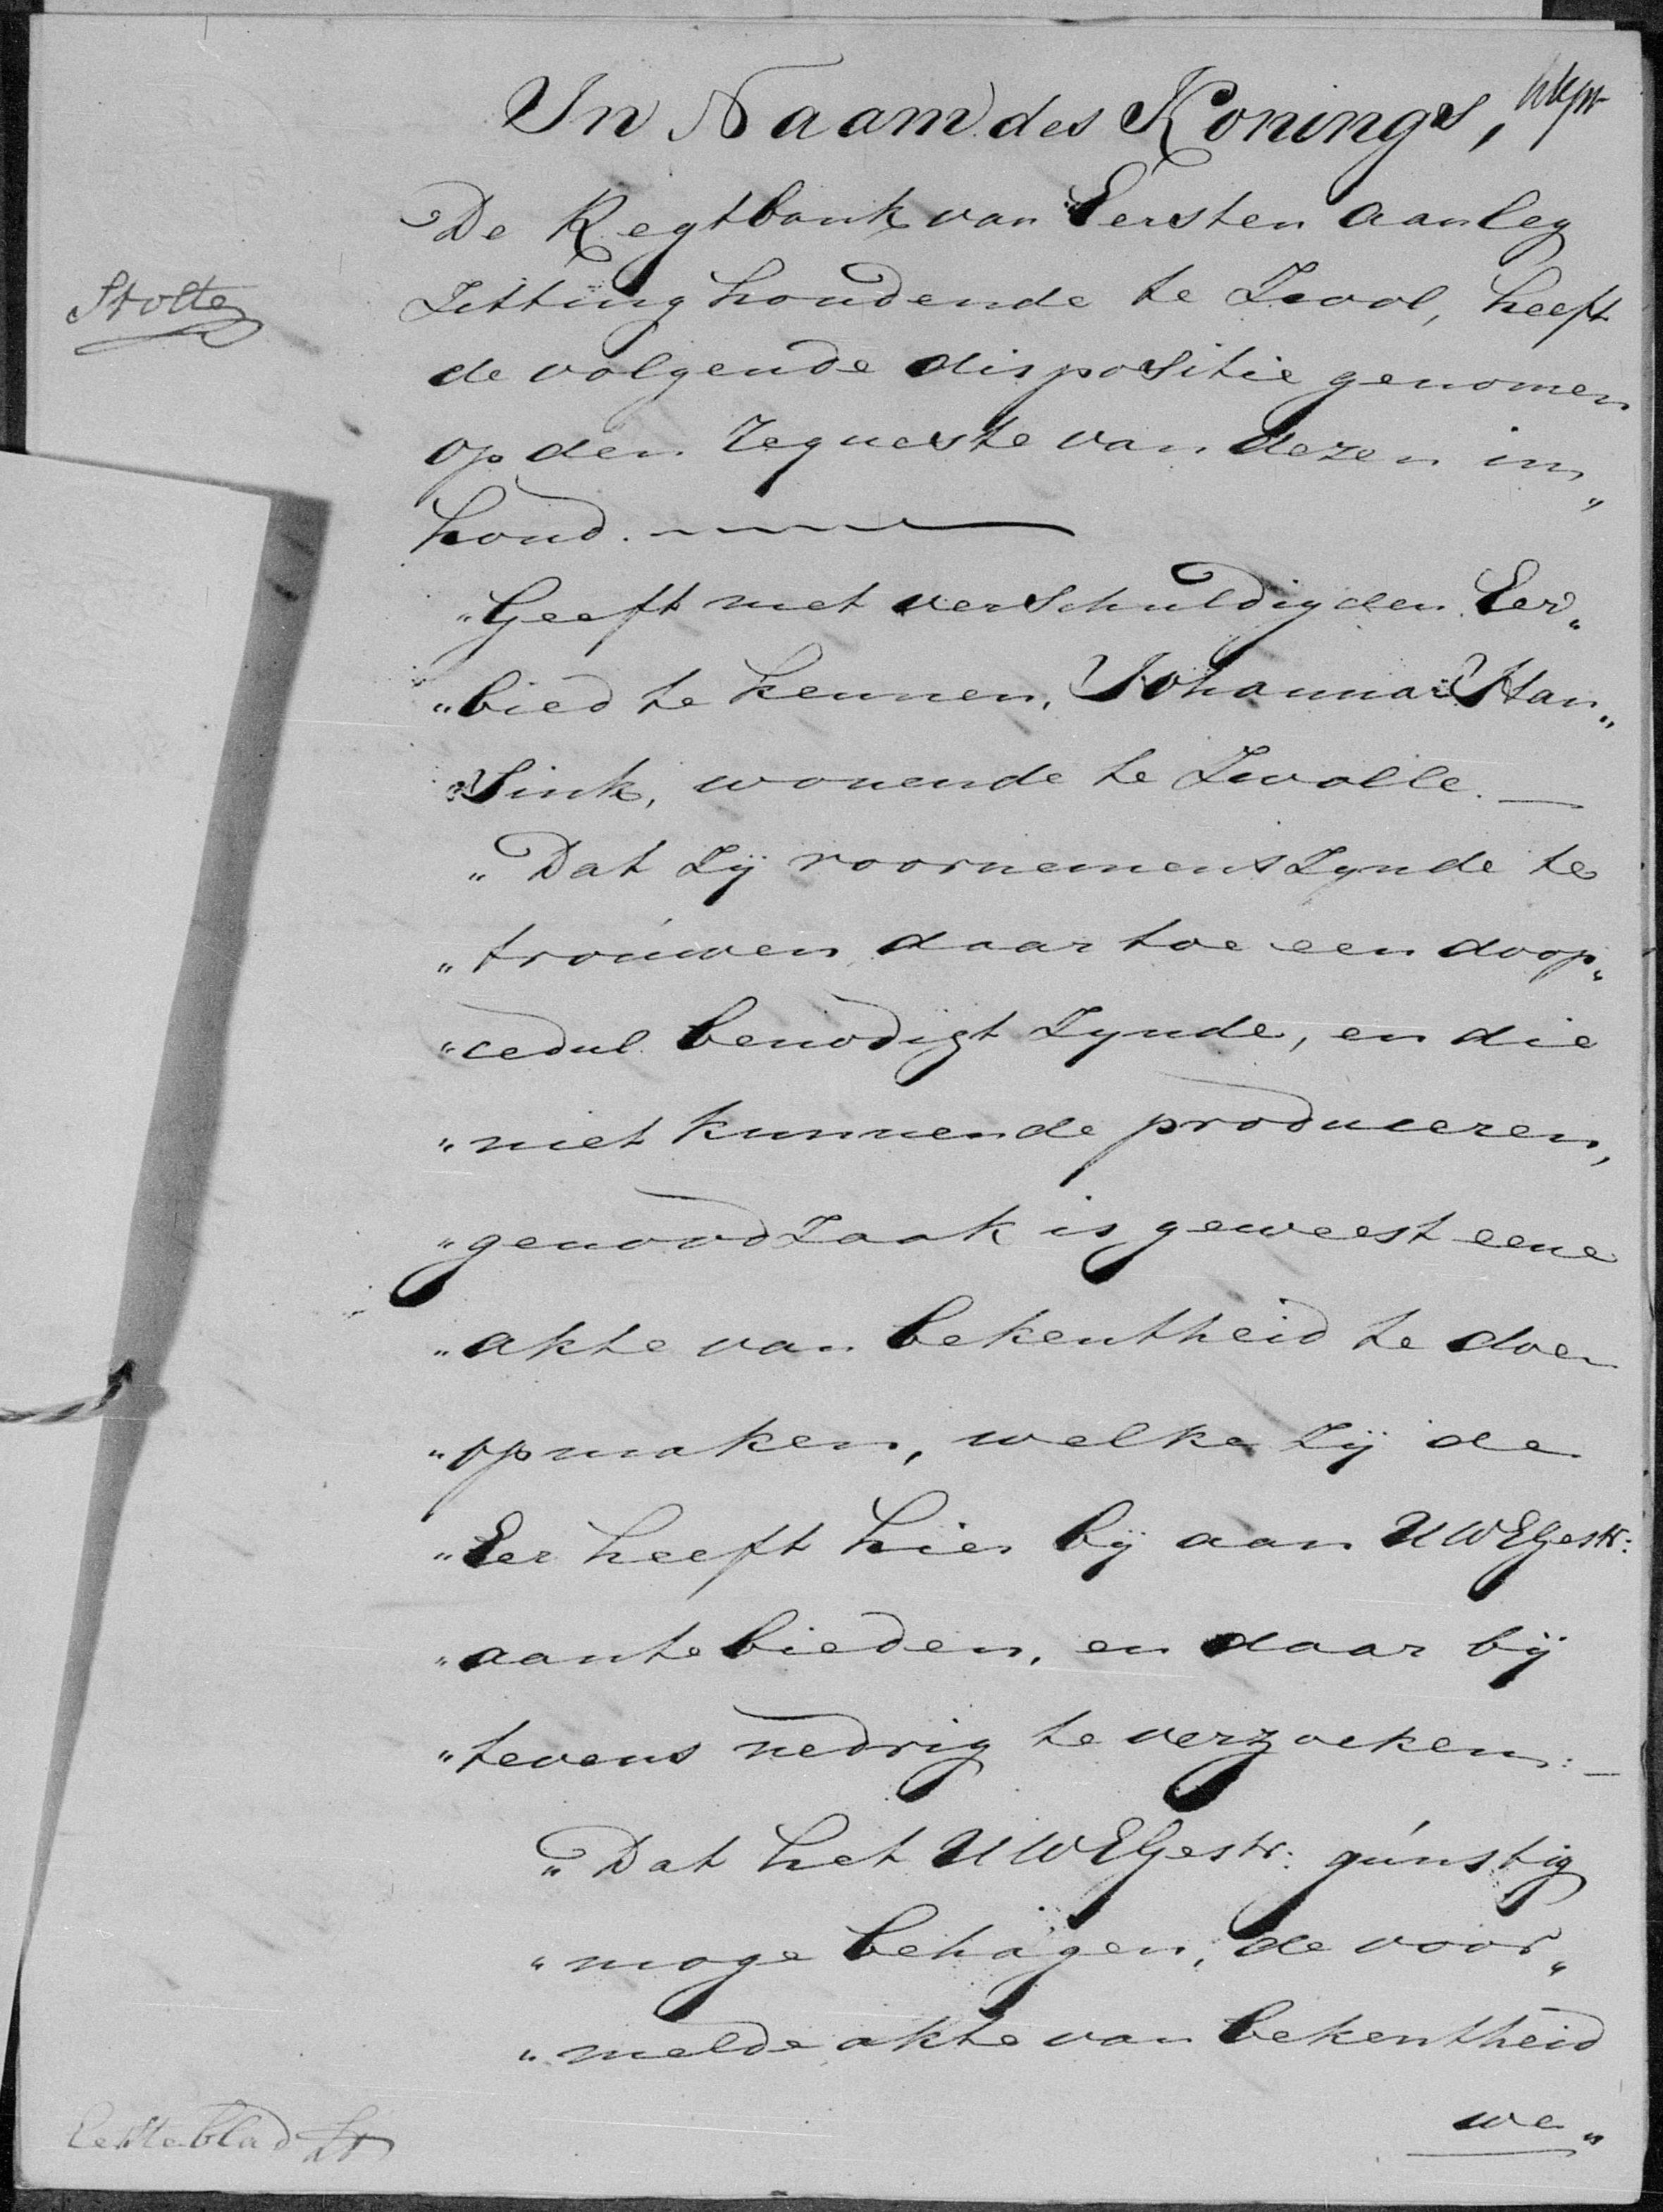 In Naam des Konings,
De Regtbank van Eersten aanleg
Stolte
Zitting houdende te Zwol, heeft
de volgende dispositie genomen
op den requeste van dezen in„
houd.
„Geeft met verschuldigden Eer„
„bied te kennen, Johanna Han„
„sink, wonende te Zwolle. —
„Dat zij voornemens zynde te
„trouwen, daar toe een doop„
„cedul benodigt zynde, en die
„niet kunnende produceren,
„genoodzaak is geweest eene
„akte van bekentheid te doen
„opmaken, welke zij de
„Eer heeft hier bij aan UWEGestr:
„aantebieden, en daar bij
„tevens nedrig te verzoeken: —
„Dat het UWEGestr: gunstig
„moge behagen, de voor„
„melde akte van bekentheid
we„
Eerste blad